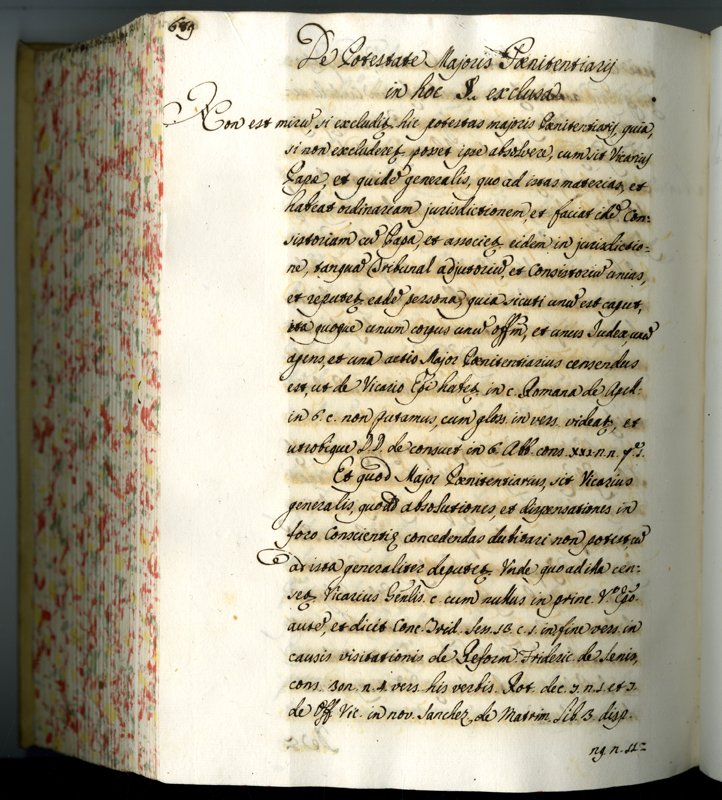 689
De Potestate Majoris Pœnitentiarij
in hoc §. exclusa
Non est mirũ, si excludit hic potestas majoris Pœnitentiarij, quia,
si non excluderet, posset ipse absolvere, cum sit Vicarius
Papæ, et quidẽ generalis, quo ad istas materias, et
habeat ordinariam jurisdictionem et faciat idẽ Con=
sistorium cũ Papa, et associet eidem in jurisdictio=
ne, tanquã Tribunal adjutoriũ et Consistoriũ unias,
et reputet eadẽ persona, quia sicuti unũ est caput,
ita quoque unum corpus unũ offm, et unus Judex, unũ
agens, et una actio Major Pœnitentiarius censendus
est, ut de Vicario Epi habet in c. Romana de Apell.
in 6. c. non putamus, cum gloss. in vers. videat, et
utrobique D.D. de consuet in 6. Abb. cons. xxx. n. n. 7.
Et quod Major Pœnitentiarius, sit Vicarius
generalis, quoad absolutiones, et dispensationes in
foro Conscientiæ concedendas dubitari non potest cũ
ad ista generaliter deputet, Unde quo ad illa cen=
set Vicarius Genlis. c. cum nullus in princ. Vo. Epo.
autẽ, et dicit Conc. Trid. sess. 13. c. 1. in fine vers. in
causis visitationis de Reform. Frideric. de Senis,
cons. 300. n. 4. vers. his verbis. Rot. dec. 3. n. 1. et 3.
de Off. Vic. in nov. Sanchez de Matrim. Lib. 3. disp.
29. n. 11.